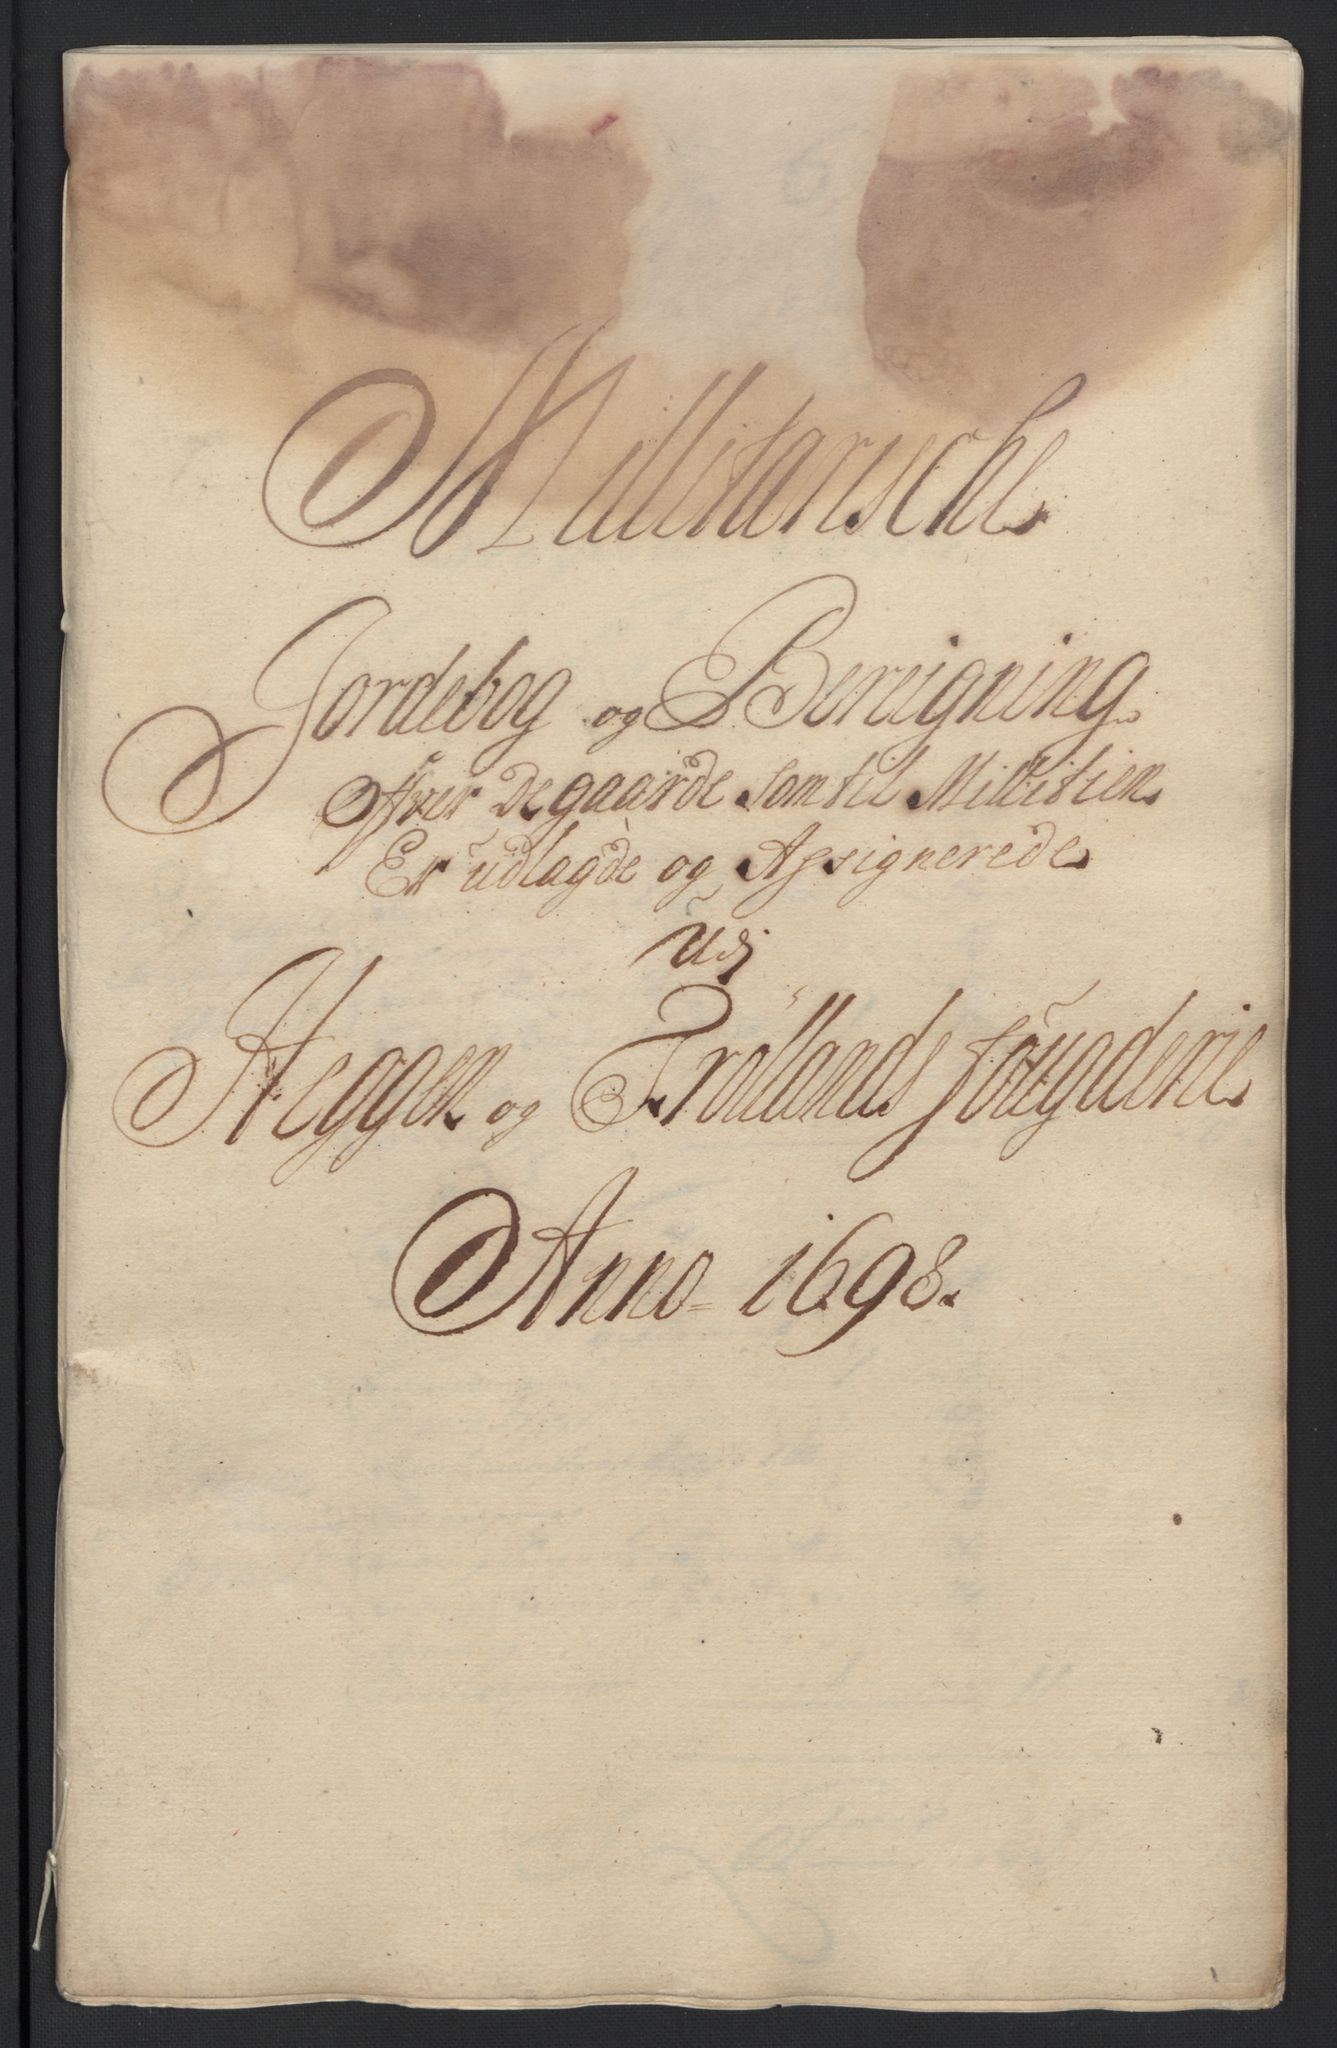 Millitarische
Jordebog og Bereigning
Ofver de gaarde som til Millitien
Er udlagde og Assignerede
Udj
Heggen og Frøllands fougderie
Anno 1698.